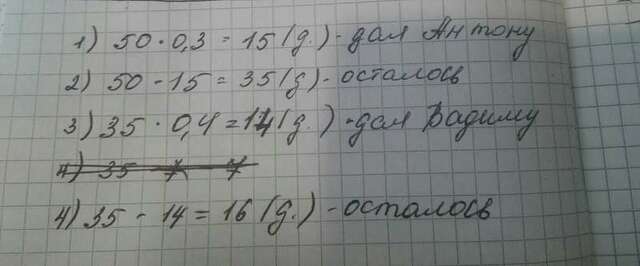 1) 50 · 0,3 = 15 (д.) - дал Антону
2) 50 - 15 = 35 (д) - осталось
3) 35 · 0,4 = 14 (д.) - дал Вадиму
4) 35 - 7 7
4) 35 - 14 = 16 (д.) - осталось